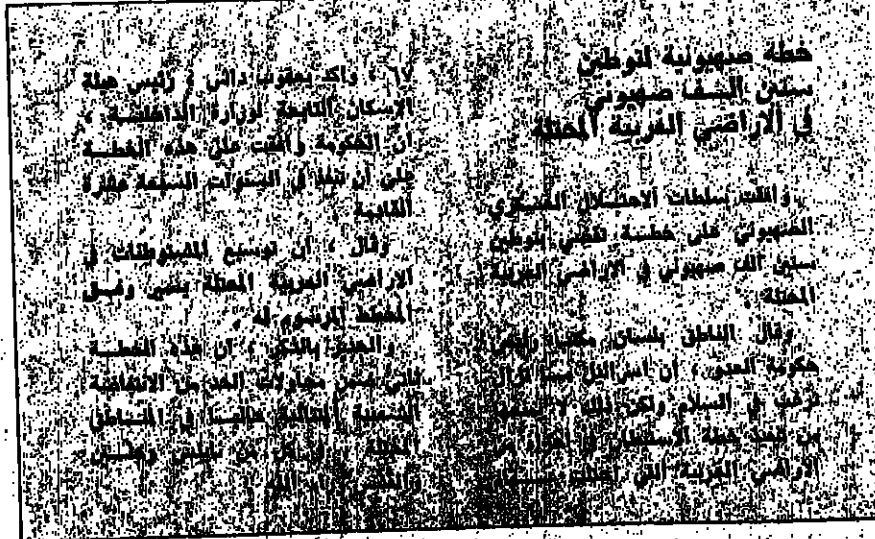 خطة صهيونية لتوطين
ستين الف صهيوني
في الاراضي العربية المحتلة
وافقت سلطات الاحتلال العسكري
الصهيوني على خطة تقضي بتوطين
ستين الف صهيوني في الاراضي العربية
المحتلة .
وقال الناطق بلسان مكتب رئيس
حكومة العدو ، ان اسرائيل فيما تزال
ترغب في السلام ولكن ذلك لا يمنعها
من تنفيذ خطة الاستيطان في اجزاء من
الاراضي العربية التي احتلت
٦٧ ، واكد يعقوب داني ، رئيس هيئة
الاسكان التابعة لوزارة الداخلية ،
ان الحكومة وافقت على هذه الخطة
على ان تنفذ في السنوات السبعة عشرة
القادمة
وقال ، ان توسيع المستوطنات في
الاراضي العربية المحتلة يسير وفق
المخطط المرسوم له .
والجدير بالذكر ، ان هذه الخطة
تاتي ضمن محاولات الحد من الانتفاضة
الشعبية حاليا في المناطق
المحتلة في كل من نابلس
والقدس ورام الله